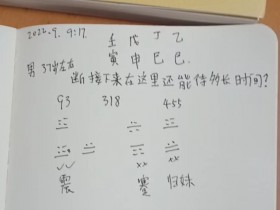 2022.9.9:17
壬戊丁乙
寅申巳巳
男 37岁左右
断接下来在这里还能待多长时间?
93 318 455
震 蹇 归妹